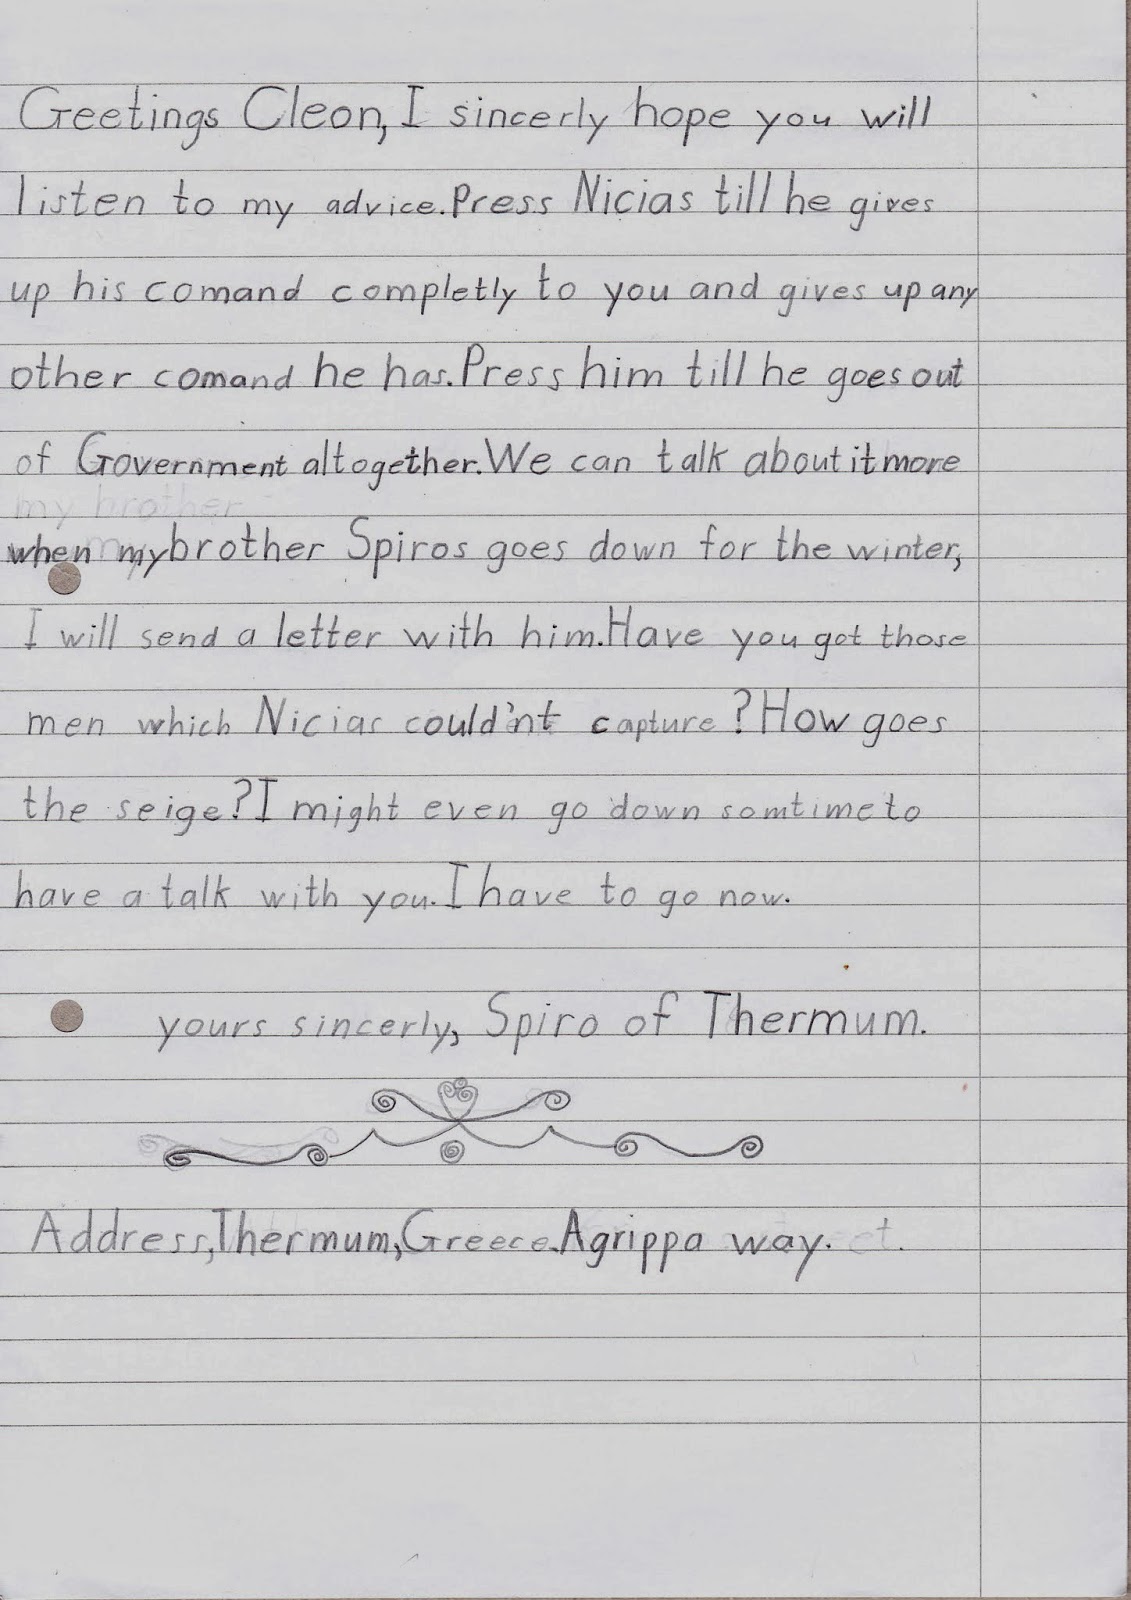 Geetings Cleon, I sincerly hope you will
listen to my advice. Press Nicias till he gives
up his comand completly to you and gives up any
other comand he has. Press him till he goes out
of Government altogether. We can talk about it more
when my brother Spiros goes down for the winter,
I will send a letter with him. Have you got those
men which Nicias could'nt capture? How goes
the seige? I might even go down somtime to
have a talk with you. I have to go now.
yours sincerly, Spiro of Thermum.
Address, Thermum, Greece. Agrippa way.